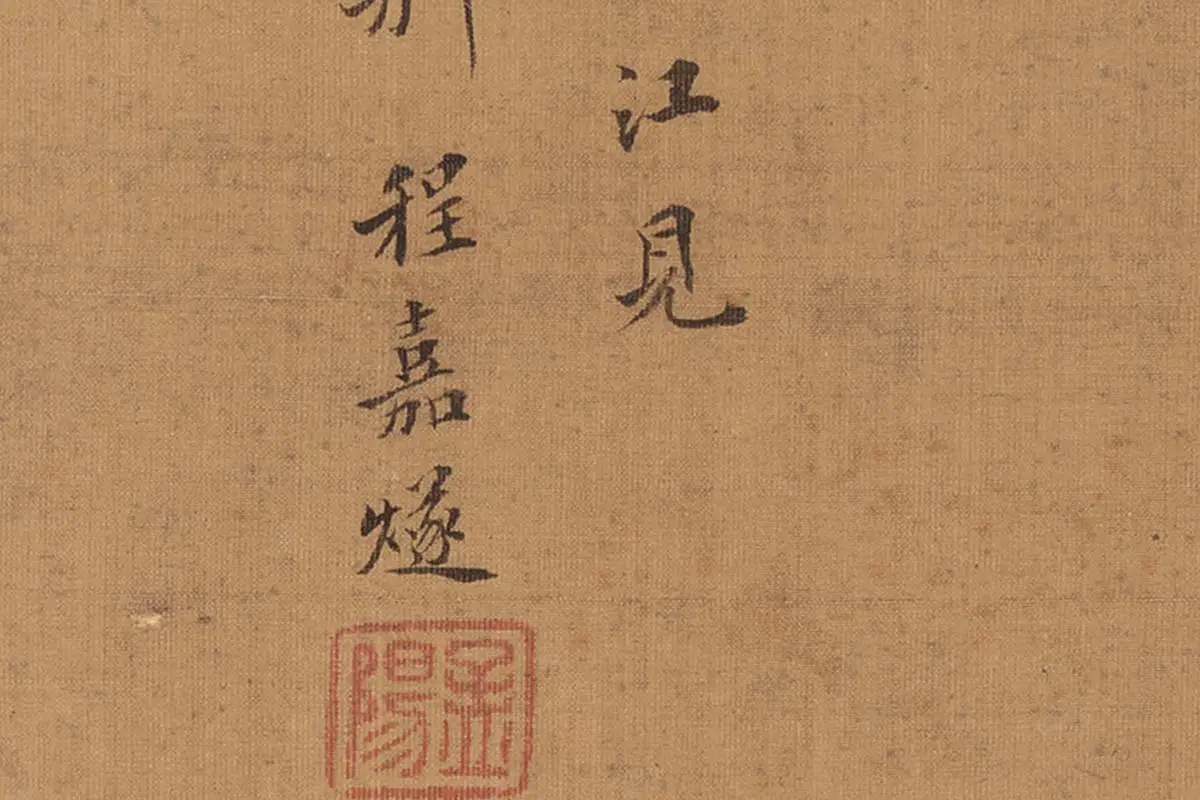 江見
程嘉燧
孟陽